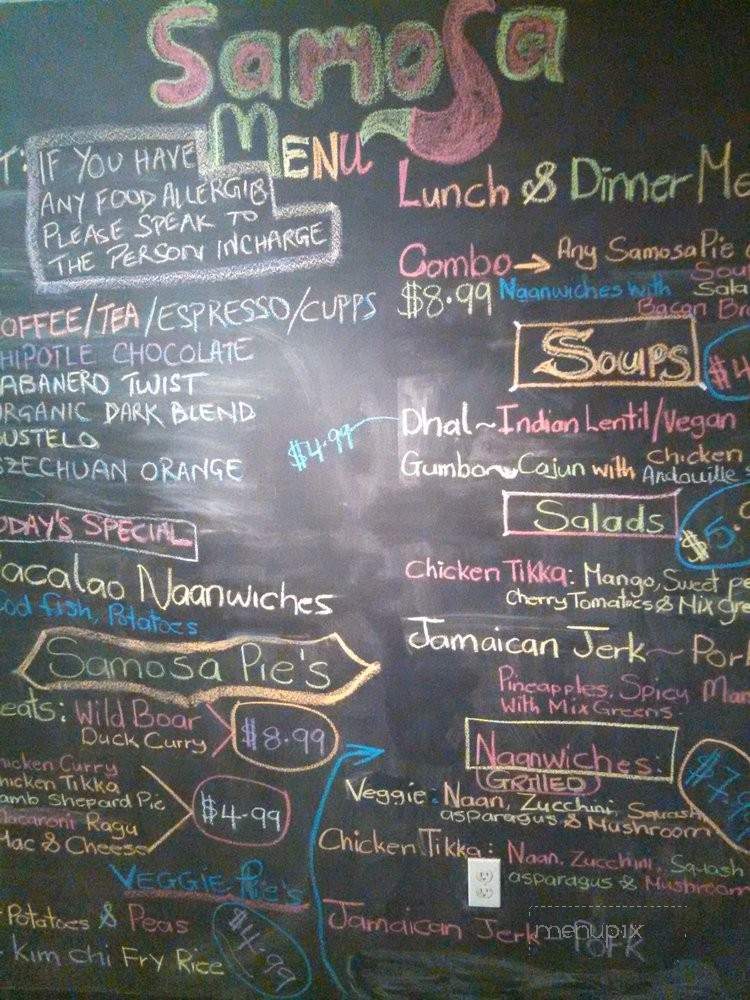 Samosa
MENU
T: IF YOU HAVE
ANY FOOD ALLERGIES
PLEASE SPEAK TO
THE PERSON INCHARGE
OFFEE/TEA/ESPRESSO/CUPPS
HIPOTLE CHOCOLATE
ABANERO TWIST
ORGANIC DARK BLEND
BUSTELO
SZECHUAN ORANGE
ODAY'S SPECIAL
acalao Naanwiches
Cod fish, Potatoes
Samosa Pie's
eats: Wild Boar
Duck Curry
$8.99
hicken Curry
hicken Tikka
amb Shepard Pie
Macaroni Ragu
Mac & Cheese
$4.99
VEGGIE Pie's
Potatoes & Peas
Kim Chi Fry Rice
$4.99
Lunch & Dinner Me
Combo → Any Samosa Pie
Sou
$8.99 Naanwiches with Sala
Bacan Br
Soups
$4
Dhal~Indian Lentil/Vegan
$4.99
Gumbo~Cajun with Chicken
Andouille
Salads
$5.
Chicken Tikka: Mango, Sweet pe
Cherry Tomatoes & Mix Gre
Jamaican Jerk~ Pork
Pineapples, Spicy Man
With Mix Greens.
Naanwiches:
GRILLED
$7.9
Veggie: Naan, Zucchini, Squash
asparagus & Mushroom
Chicken Tikka: Naan, Zucchini, Squash
asparagus & Mushroom
Jamaican Jerk~ Pork
menupix